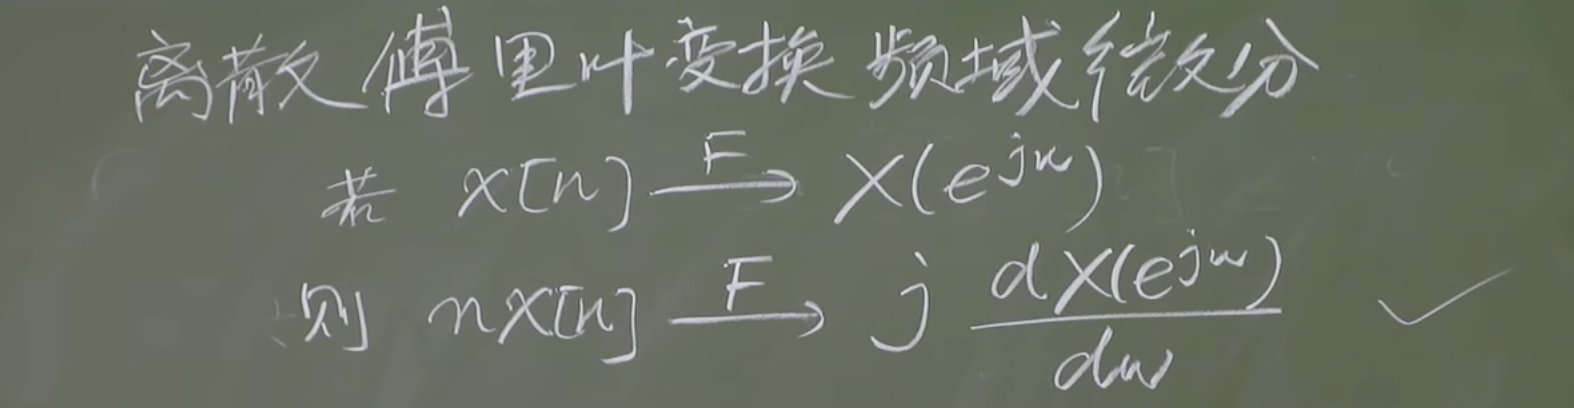 离散傅里叶变换频域微分
若 x[n] \xrightarrow{F} X(e^{jω})
则 nx[n] \xrightarrow{F} j \frac{dX(e^{jω})}{dω} ✓